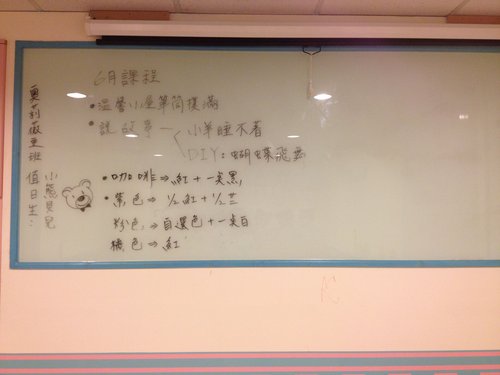 6月課程
•溫馨小屋筆筒撲滿
•說故事 — 小羊睡不著
DIY:蝴蝶飛
•咖啡⇒紅+一尖黑
•紫色⇒½紅+½
粉色⇒自選色+一尖白
橘色⇒紅
奧利薇亞班
值日生:
小熊貝兒